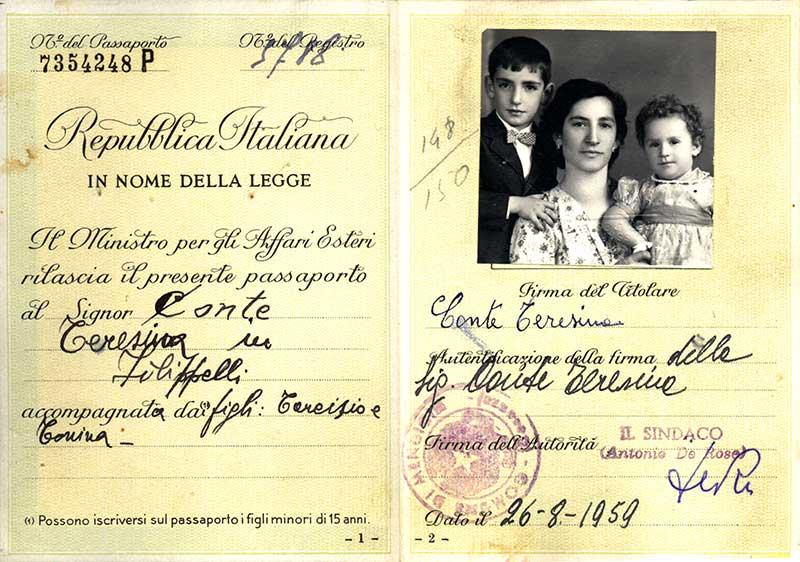 Nº del Passaporto
Nº del Registro
7354248 P
Repubblica Italiana
IN NOME DELLA LEGGE
Il Ministro per gli Affari Esteri
rilascia il presente passaporto
al Signor Conte
Teresina in
Filippelli
accompagnata dai (1) figli: Tarcisio e
Tonina
(1) Possono iscriversi sul passaporto i figli minori di 15 anni.
- 1 -
148
150
Firma del Titolare
Conte Teresina
Autentificazione della firma della
sig. Conte Teresina
Firma dell'Autorità
IL SINDACO
(Antonio De Rose)
Dato il 26-8-1959
- 2 -